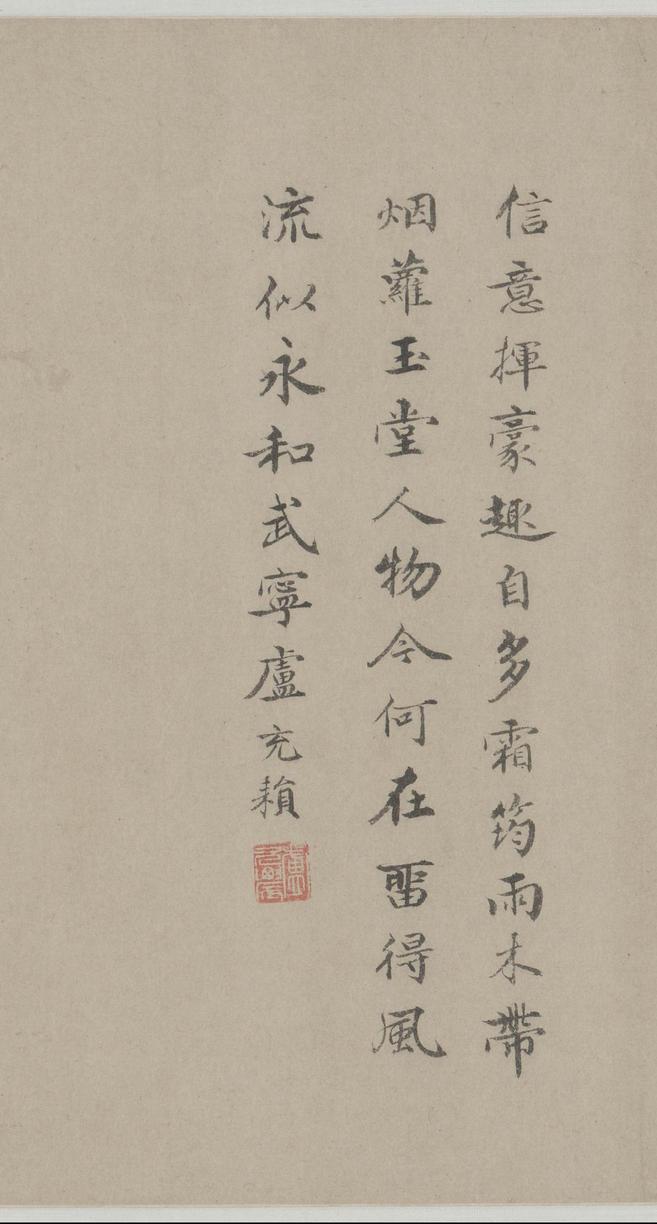 信意揮豪趣自多霜筠雨木帶
烟蘿玉堂人物今何在畱得風
流似永和武寧盧充䫂